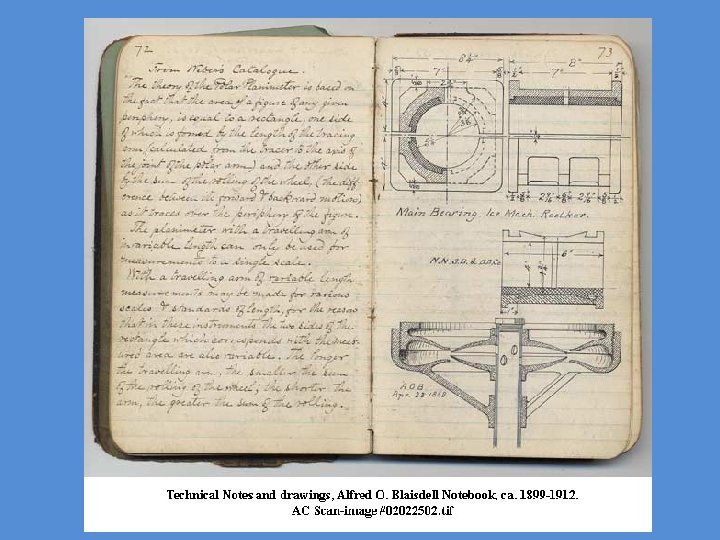 72
From Weber's Catalogue.
The theory of the Polar Planimeter is based on
the fact that the area of a figure of any given
periphery, is equal to a rectangle, one side
of which is formed by the length of the tracing
arm (calculated from the tracer to the axis of
the joint of the polar arm) and the other side
by the sum of the rolling of the wheel, (the diff
erence between its forward & backward motion)
as it traces over the periphery of the figure.
The planimeter with a travelling arm of
invariable length can only be used for
measurements to a single scale.
With a travelling arm of variable length
measurements may be made for various
scales & standards of length, for the reason
that in these instruments the two sides of the
rectangle which corresponds with the meas-
ured area are also variable. The longer
the travelling arm, the smaller the sum
of the rolling of the wheel, the shorter the
arm, the greater the sum of the rolling.
73
8"
7"
7"
Main Bearing. Ice Mach.
6"
A.O.B
Apr. 22
Technical Notes and drawings, Alfred O. Blaisdell Notebook, ca. 1899-1912.
AC Scan-image #02022502.tif